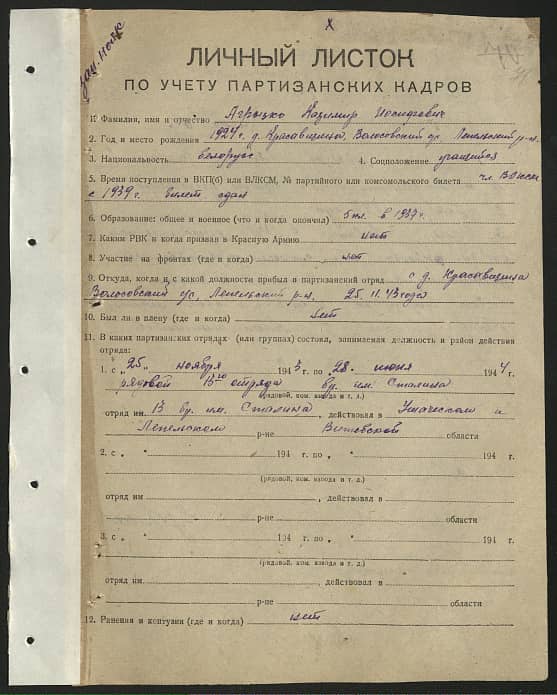 х
ЛИЧНЫЙ ЛИСТОК
ПО УЧЕТУ ПАРТИЗАНСКИХ КАДРОВ
1. Фамилия, имя и отчество Ягрыцко Казимир Иосифович
2. Год и место рождения 1924 г. д. Красавщина, Волосовский с/с, Лепельский р-н.
3. Национальность белорус 4. Соцположение учащийся
5. Время поступления в ВКП(б) или ВЛКСМ, № партийного или комсомольского билета чл. ВЛКСМ
с 1939 г. билет сдал
6. Образование: общее и военное (что и когда окончил) 5 кл. в 1937 г.
7. Каким РВК и когда призван в Красную Армию нет
8. Участие на фронтах (где и когда) нет
9. Откуда, когда и с какой должности прибыл в партизанский отряд с д. Красавщина
Волосовский с/с, Лепельский р-н. 25. 11. 43 года
10. Был ли в плену (где и когда) нет
11. В каких партизанских отрядах (или группах) состоял, занимаемая должность и район действия
отряда:
1. с „25„ ноября 1943 г по „28„ июня 1944 г.
рядовой 15го отряда бр. им. Сталина
(рядовой, ком. взвода и т. д.)
отряд им. 15 бр. им. Сталина, действовал в Ушачском и
Лепельском р-не Витебской области
2. с „ “ 194 г. по „ “ 194 г.
(рядовой, ком. взвода и т. д.)
отряд им , действовал в
р-не области
3. с „ “ 194 г. по „ “ 194 г.
(рядовой, ком. взвода и т. д.)
отряд им. , действовал в
р-не области
12. Ранения и контузии (где и когда) нет